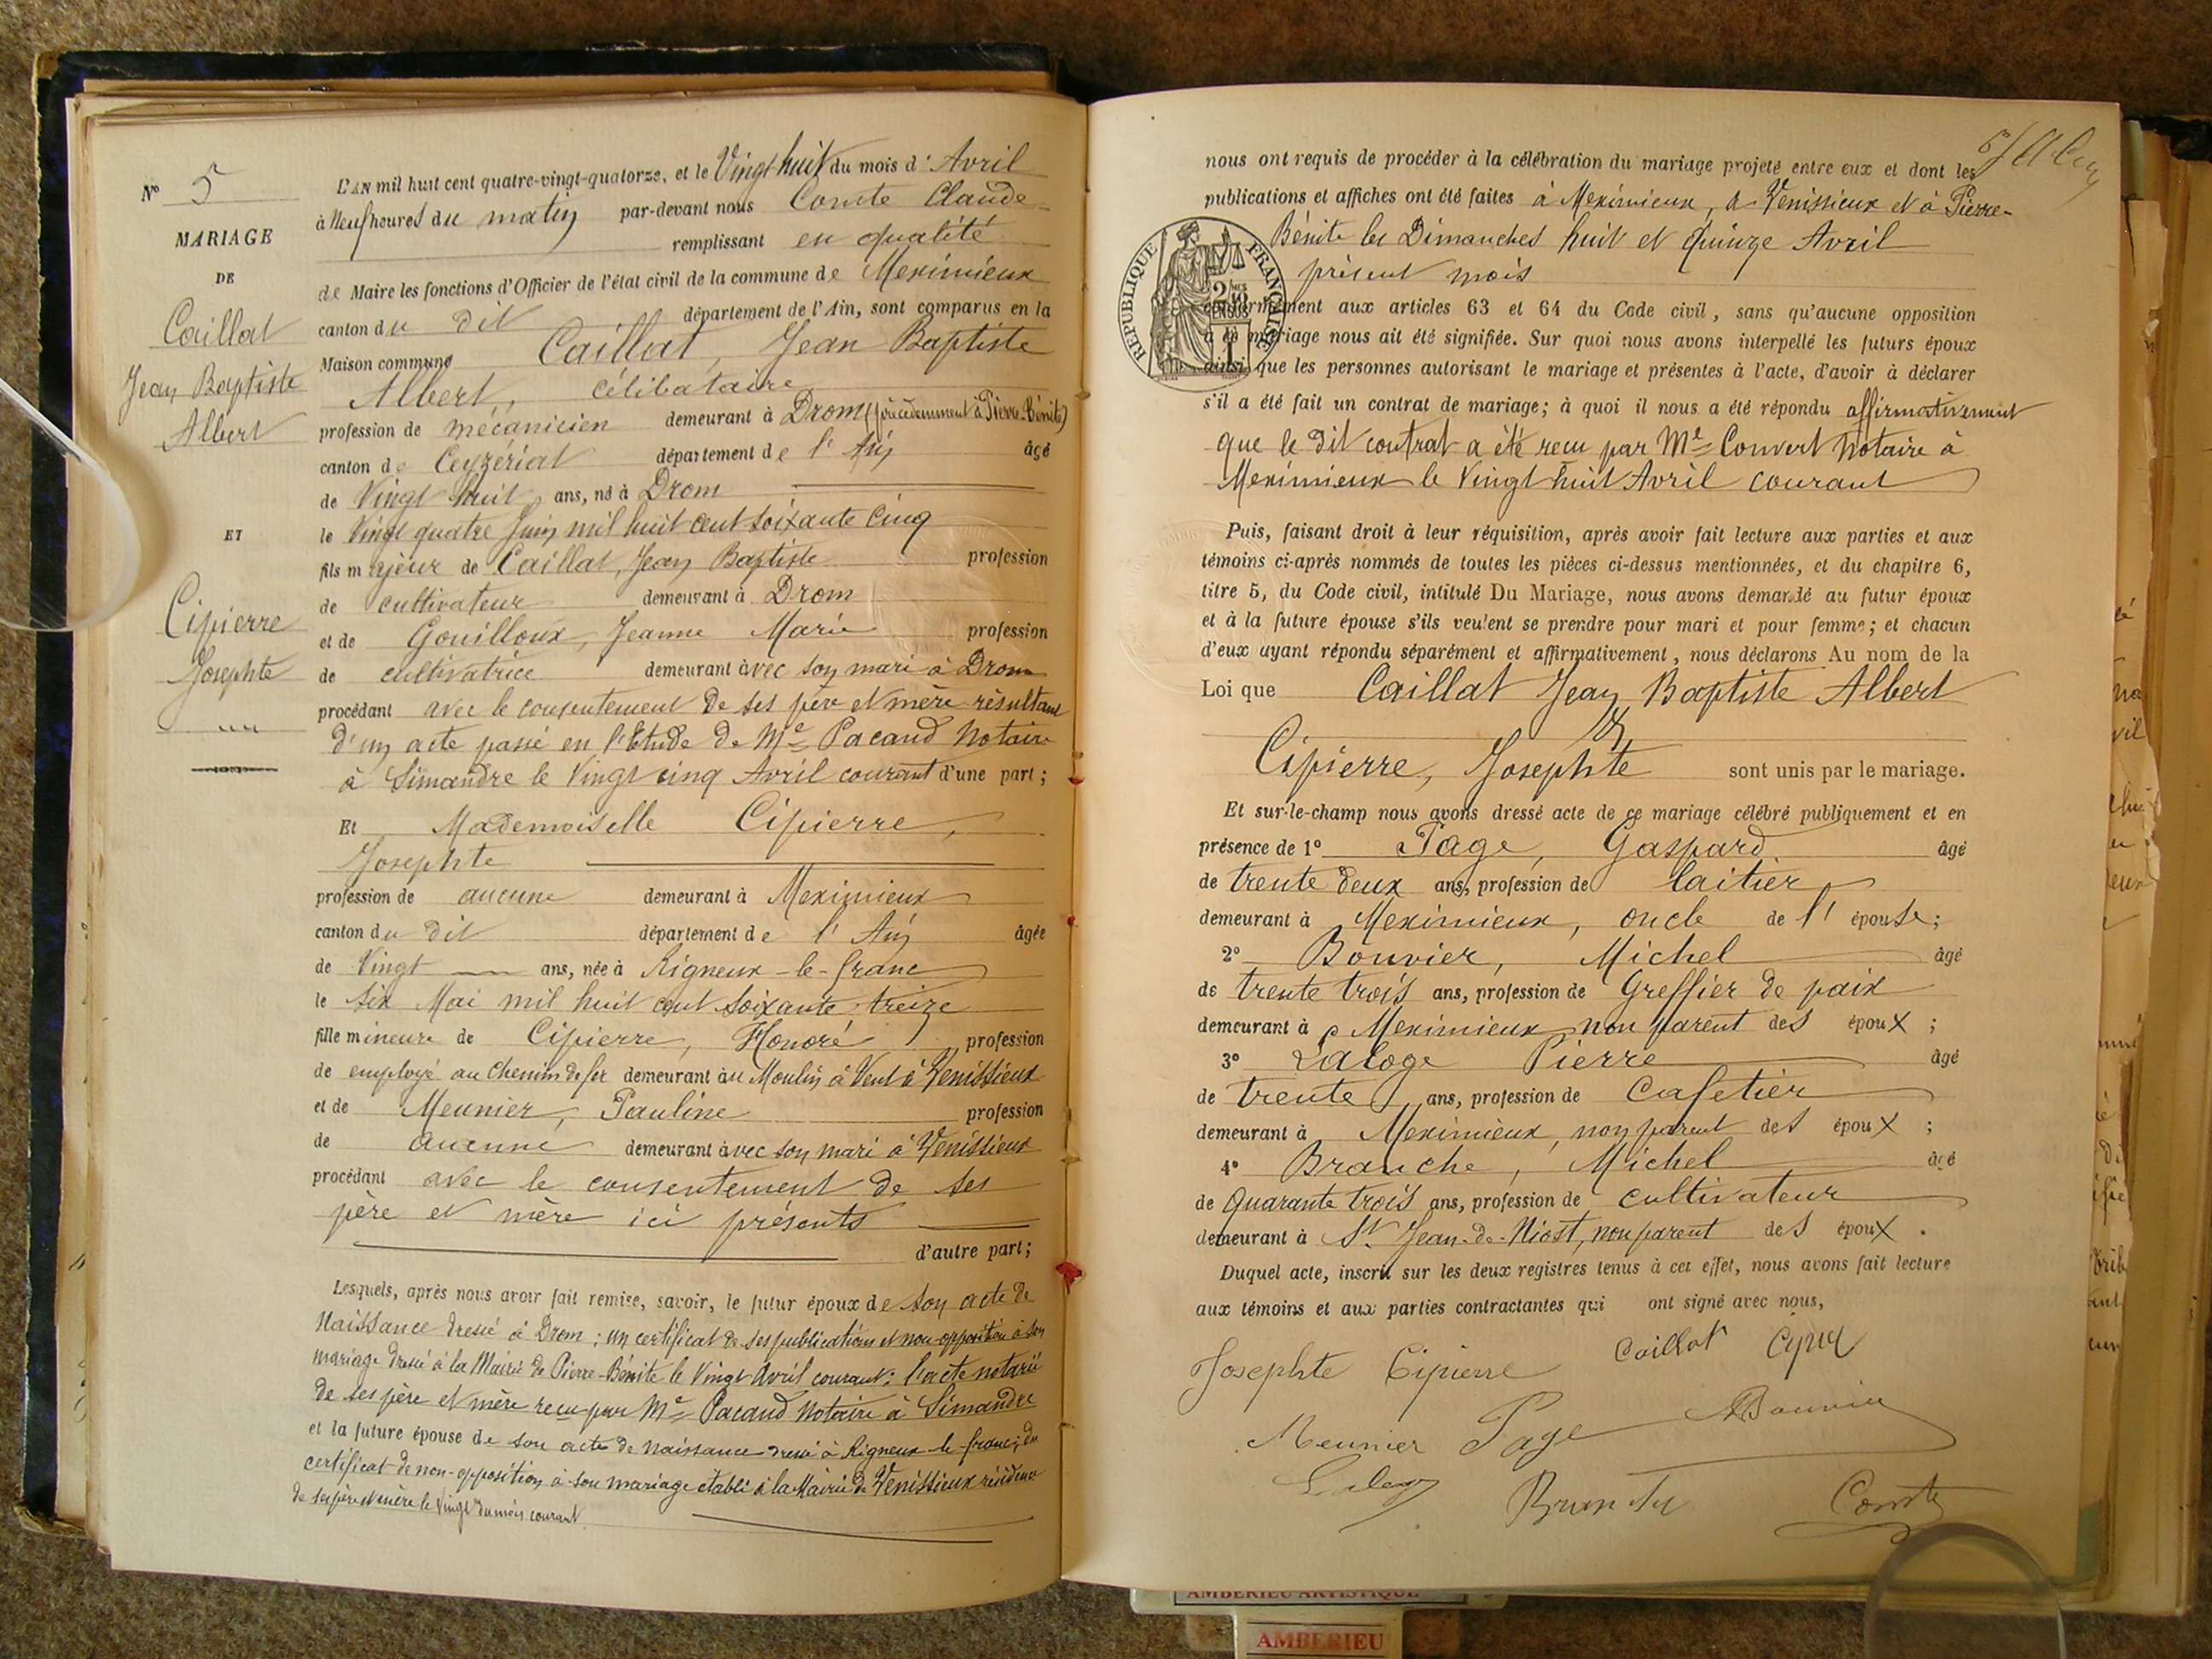 N° 5
MARIAGE
DE
Caillat
Jean Baptiste
Albert
ET
Cipierre
Josephte
L'AN mil huit cent quatre-vingt-quatorze, et le Vingt huit du mois d'Avril
à Neuf heures du matin par-devant nous Comte Claude
remplissant en qualité
de Maire les fonctions d'Officier de l'état civil de la commune de Meximieux
canton du dit département de l'Ain, sont comparus en la
Maison commune Caillat, Jean Baptiste
Albert, célibataire
profession de mécanicien demeurant à Drom (précédemment à Pierre-Bénite)
canton de Ceyzériat département de l'Ain âgé
de Vingt huit ans, né à Drom
le Vingt quatre Juin mil huit cent soixante cinq
fils majeur de Caillat, Jean Baptiste profession
de cultivateur demeurant à Drom
et de Gouilloux, Jeanne Marie profession
de cultivatrice demeurant avec son mari à Drom
procédant avec le consentement de ses père et mère résultant
d'un acte passé en l'Etude de Me Pacaud Notaire
à Simandre le Vingt cinq Avril courant d'une part;
Et Mademoiselle Cipierre,
Josephte
profession de aucune demeurant à Meximieux
canton du dit département de l'Ain âgée
de Vingt ans, née à Rigneux-le-franc
le six Mai mil huit cent soixante treize
fille mineure de Cipierre, Honoré profession
de employé au Chemin de fer demeurant au Moulin à Vent à Venissieux
et de Meunier, Pauline profession
de aucune demeurant avec son mari à Venissieux
procédant avec le consentement de ses
père et mère ici présents
d'autre part;
Lesquels, après nous avoir fait remise, savoir, le futur époux de son acte de
Naissance dressé à Drom; un certificat de ses publications et non-opposition à son
mariage dressé à la Mairie de Pierre-Bénite le Vingt Avril courant; l'acte notarié
de ses père et mère reçu par Me Pacaud Notaire à Simandre
et la future épouse de son acte de naissance dressé à Rigneux-le-franc; du
certificat de non-opposition à son mariage établi à la Mairie de Venissieux résidence
de ses père et mère le vingt du mois courant
nous ont requis de procéder à la célébration du mariage projeté entre eux et dont les
publications et affiches ont été faites à Meximieux, à Venissieux et à Pierre-
Bénite les Dimanches huit et quinze Avril
présent mois
REPUBLIQUE FRANÇAISE
conformément aux articles 63 et 64 du Code civil, sans qu'aucune opposition
à ce mariage nous ait été signifiée. Sur quoi nous avons interpellé les futurs époux
ainsi que les personnes autorisant le mariage et présentes à l'acte, d'avoir à déclarer
s'il a été fait un contrat de mariage; à quoi il nous a été répondu affirmativement
que le dit contrat a été reçu par Me Convert Notaire à
Meximieux le Vingt huit Avril courant
Puis, faisant droit à leur réquisition, après avoir fait lecture aux parties et aux
témoins ci-après nommés de toutes les pièces ci-dessus mentionnées, et du chapitre 6,
titre 5, du Code civil, intitulé Du Mariage, nous avons demandé au futur époux
et à la future épouse s'ils veulent se prendre pour mari et pour femme; et chacun
d'eux ayant répondu séparément et affirmativement, nous déclarons Au nom de la
Loi que Caillat Jean Baptiste Albert
Et
Cipierre, Josephte sont unis par le mariage.
Et sur-le-champ nous avons dressé acte de ce mariage célébré publiquement et en
présence de 1° Page, Gaspard âgé
de trente deux ans, profession de laitier
demeurant à Meximieux, oncle de l'épouse;
2° Bouvier, Michel âgé
de trente trois ans, profession de Greffier de paix
demeurant à Meximieux non parent des époux;
3° Laloge Pierre âgé
de trente ans, profession de Cafetier
demeurant à Meximieux, non parent des époux;
4° Branche, Michel âgé
de quarante trois ans, profession de cultivateur
demeurant à St Jean-de-Niost, non parent des époux.
Duquel acte, inscrit sur les deux registres tenus à cet effet, nous avons fait lecture
aux témoins et aux parties contractantes qui ont signé avec nous,
Josephte Cipierre Caillat
Meunier Page Bouvier
Comte
AMBERIEU ARTISTIQUE
AMBERIEU